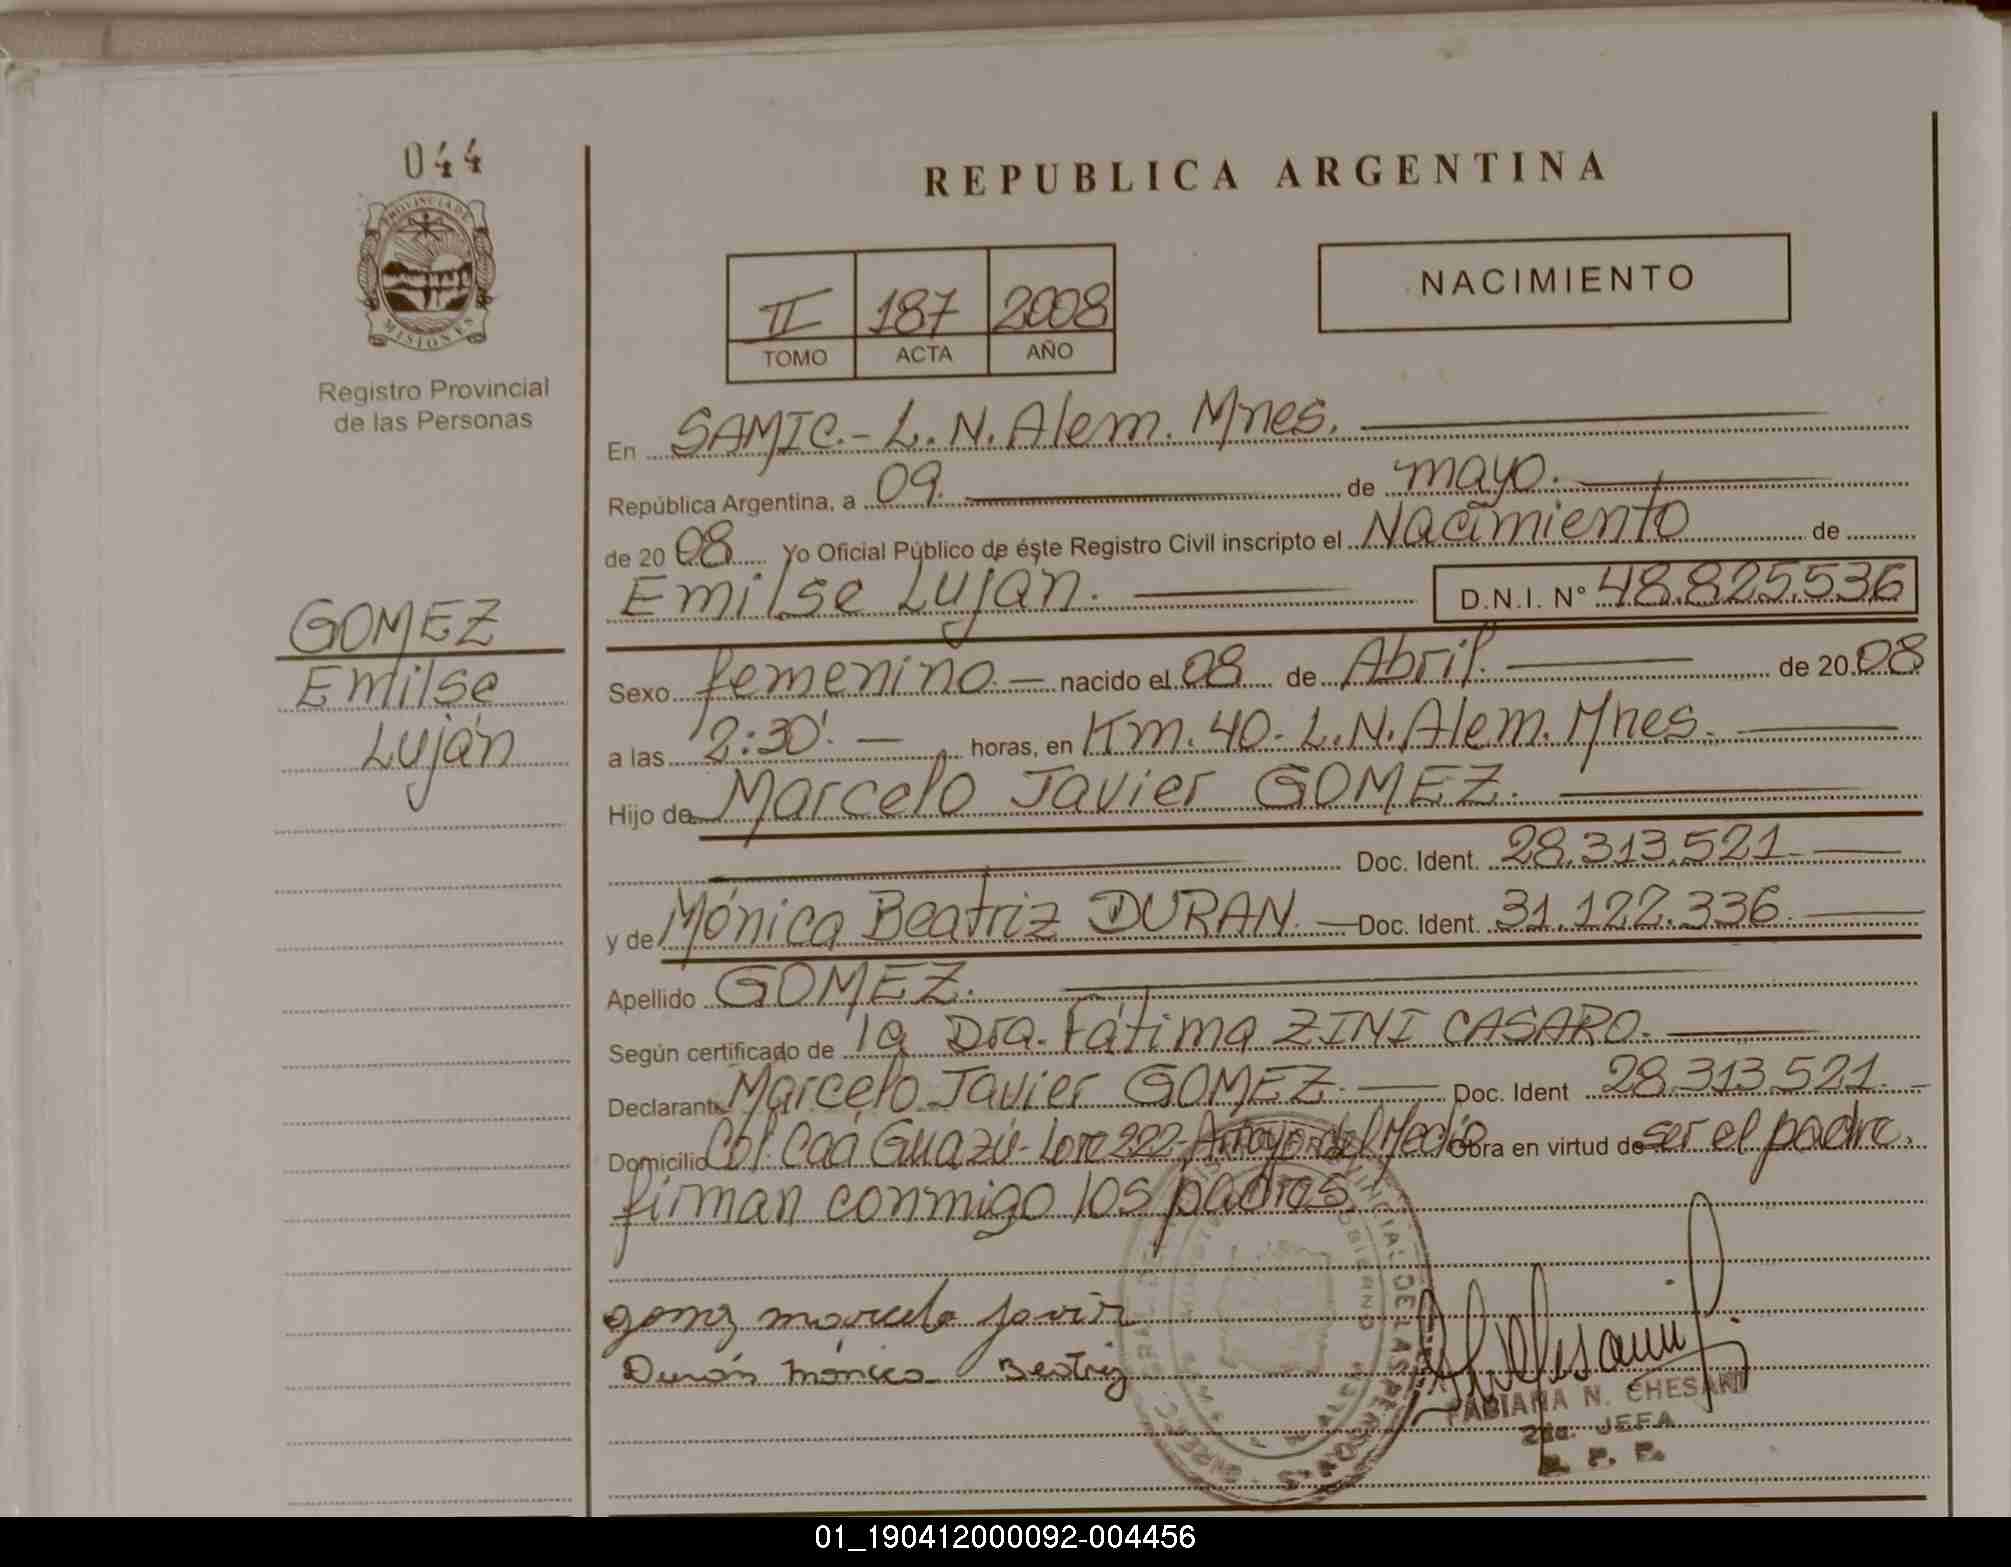 044
PROVINCIA DE
MISIONES
Registro Provincial
de las Personas
GOMEZ
Emilse
Luján
REPUBLICA ARGENTINA
II 187 2008
TOMO ACTA AÑO
NACIMIENTO
En SAMIC.- L. N. Alem. Mnes.
República Argentina, a 09. de mayo.
de 2008 Yo Oficial Público de éste Registro Civil inscripto el Nacimiento de
Emilse Luján. D.N.I. N° 48.825.536
Sexo femenino. nacido el 08 de Abril. de 2008
a las 2:30'. horas, en Km. 40- L.N. Alem. Mnes.
Hijo de Marcelo Javier GOMEZ.
Doc. Ident. 28.313.521.
y de Mónica Beatriz DURAN. Doc. Ident. 31.122.336.
Apellido GOMEZ.
Según certificado de la Dra. Fátima ZINI CASARO.
Declarante Marcelo Javier GOMEZ. Doc. Ident 28.313.521.
Domicilio Col. Caá Guazú- Lote 222- Arroyo del Medio Obra en virtud de ser el padre.
firman conmigo los padres.
gomz marcelo javir
Durán Mónica Beatriz
FABIANA N. CHESANI
2da. JEFA
R. P. P.
01_190412000092-004456